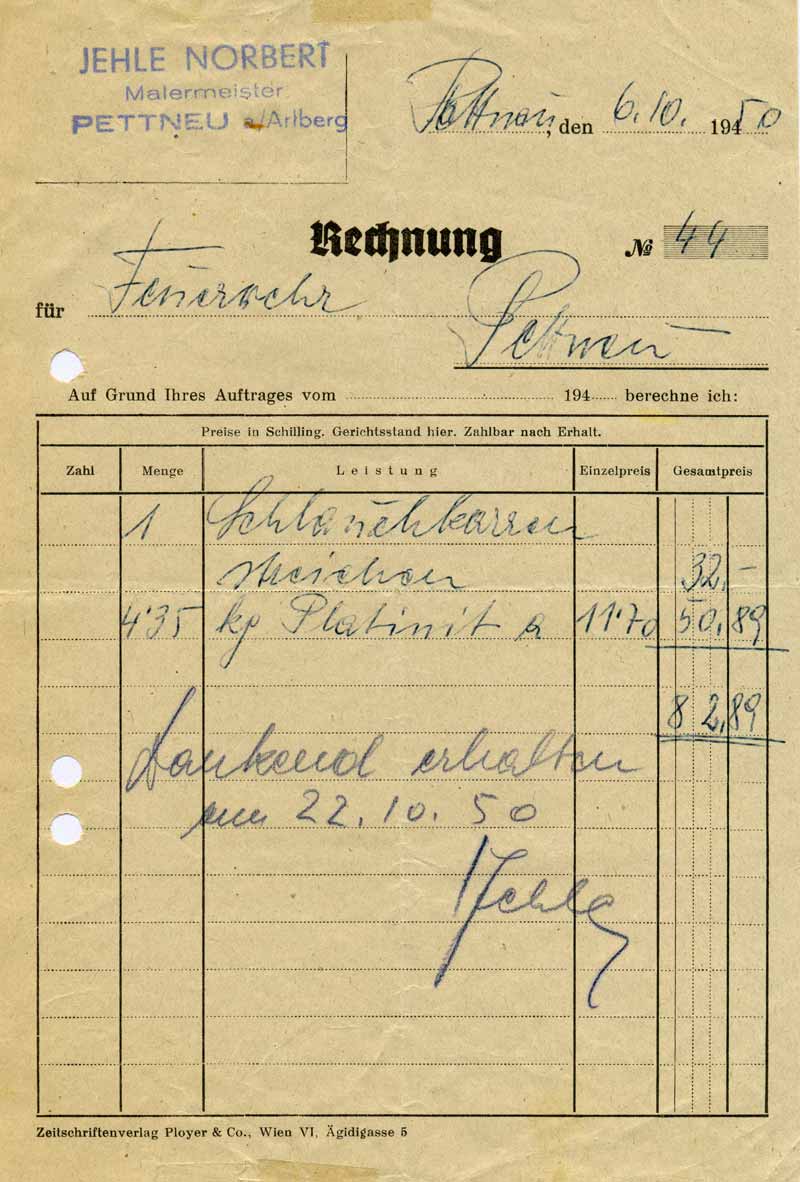 JEHLE NORBERT
Malermeister
PETTNEU a/Arlberg
Pettneu, den 6.10. 194 50
Rechnung № 44
für Feuerwehr
Pettneu
Auf Grund Ihres Auftrages vom 194 berechne ich:
Preise in Schilling. Gerichtsstand hier. Zahlbar nach Erhalt.
Zahl Menge Leistung Einzelpreis Gesamtpreis
1 Schlauchkarren
streichen 32,-
4·35 kg Platinit a 11·70 50,89
82,89
Dankend erhalten
am 22.10.50
Jehle
Zeitschriftenverlag Ployer & Co., Wien VI, Ägidigasse 5